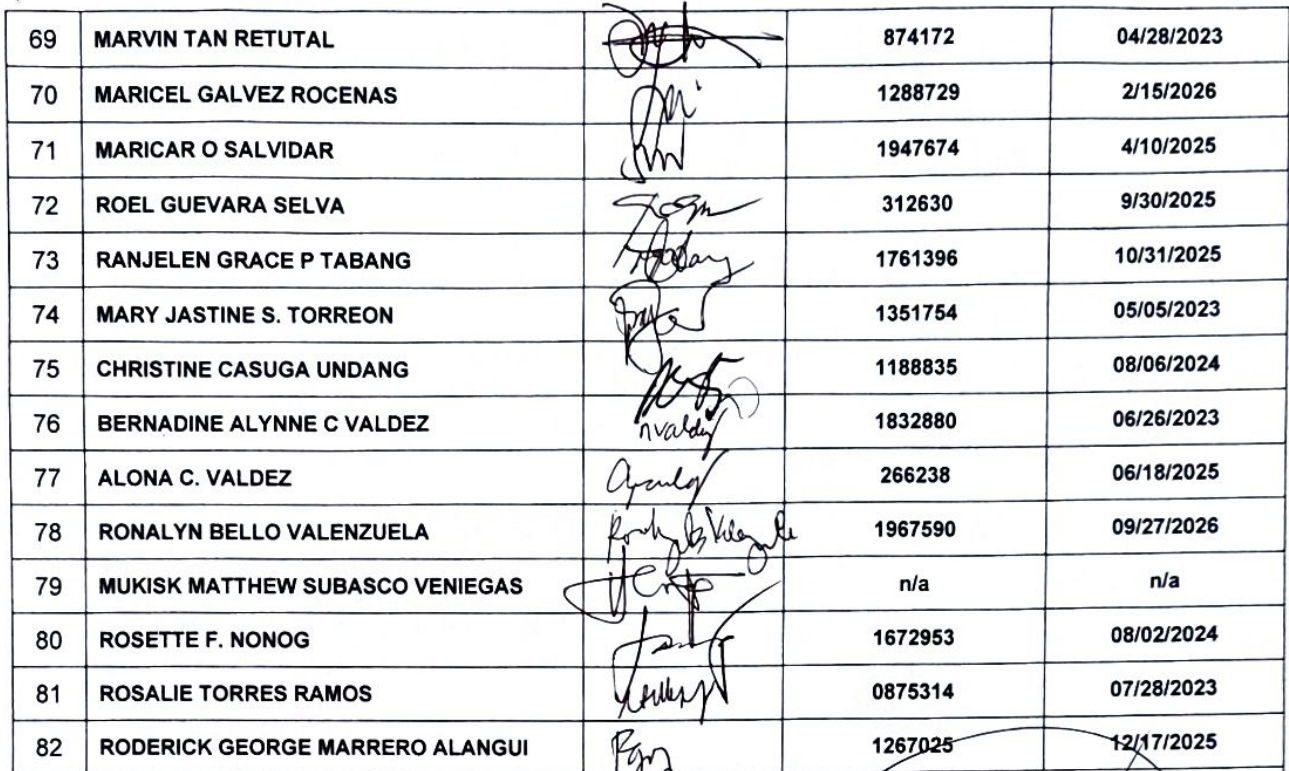 69 MARVIN TAN RETUTAL 874172 04/28/2023
70 MARICEL GALVEZ ROCENAS 1288729 2/15/2026
71 MARICAR O SALVIDAR 1947674 4/10/2025
72 ROEL GUEVARA SELVA 312630 9/30/2025
73 RANJELEN GRACE P TABANG 1761396 10/31/2025
74 MARY JASTINE S. TORREON 1351754 05/05/2023
75 CHRISTINE CASUGA UNDANG 1188835 08/06/2024
76 BERNADINE ALYNNE C VALDEZ 1832880 06/26/2023
77 ALONA C. VALDEZ 266238 06/18/2025
78 RONALYN BELLO VALENZUELA 1967590 09/27/2026
79 MUKISK MATTHEW SUBASCO VENIEGAS n/a n/a
80 ROSETTE F. NONOG 1672953 08/02/2024
81 ROSALIE TORRES RAMOS 0875314 07/28/2023
82 RODERICK GEORGE MARRERO ALANGUI 1267025 12/17/2025